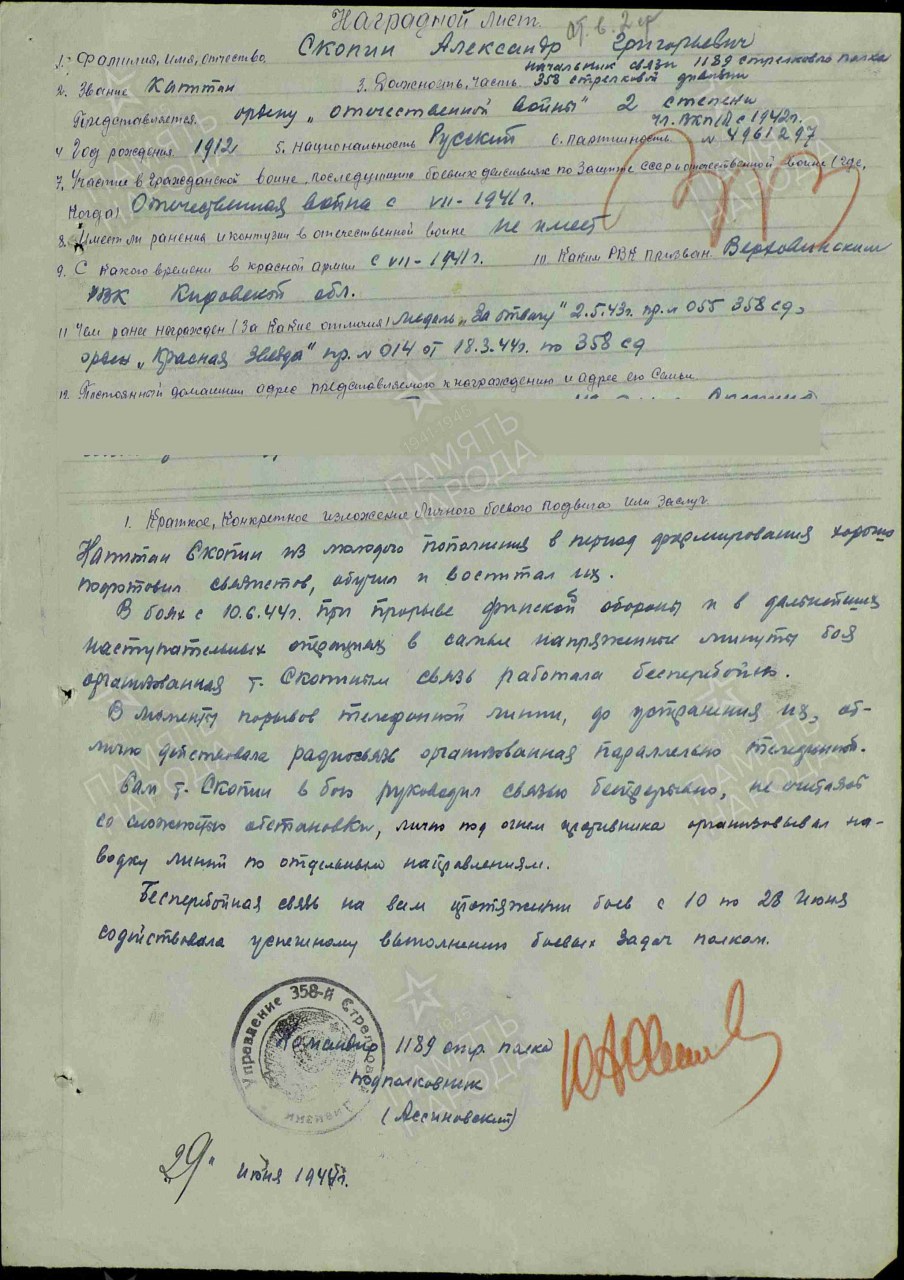 Наградной лист.
от. в. 2 ст
1. Фамилия, имя, отчество Скопин Александр Григорьевич
2. Звание Капитан 3. Должность, часть начальник связи 1189 стрелкового полка
358 стрелковой дивизии
Представляется ордену "Отечественной войны" 2 степени
чл. ВКП(б) с 1942г.
4. Год рождения 1912 5. Национальность Русский 6. Партийность № 4961297
7. Участие в гражданской войне, последующих боевых действиях по защите СССР и отечественной войне (где,
когда) Отечественная война с VII-1941г.
8. Имеет ли ранения и контузии в отечественной войне не имеет
9. С какого времени в красной армии с VII-1941г. 10. Каким РВК призван Верховинским
РВК Кировской обл.
11. Чем ранее награжден (за какие отличия) медаль "За отвагу" 2.5.43г. пр. № 055 358 сд,
орден "Красная Звезда" пр. № 014 от 18.3.44г. по 358 сд
12. Постоянный домашний адрес представляемого к награждению и адрес его семьи
1. Краткое, конкретное изложение личного боевого подвига или заслуг
Капитан Скопин из молодого пополнения в период формирования хорошо
подготовил связистов, обучил и воспитал их.
В боях с 10.6.44г. при прорыве финской обороны и в дальнейших
наступательных операциях в самые напряженные минуты боя
организованная т. Скопиным связь работала бесперебойно.
В моменты порывов телефонной линии, до устранения их, от-
лично действовала радиосвязь организованная параллельно телефонной.
Сам т. Скопин в бою руководил связью беспрерывно, не считаясь
со сложностью обстановки, лично под огнем противника организовывал на-
водку линий по отдельным направлениям.
Бесперебойная связь на всем протяжении боев с 10 по 28 июня
содействовала успешному выполнению боевых задач полком.
Управление 358-й Стрелковой Дивизии
Командир 1189 стр. полка
подполковник
(Ассиновский)
"29" июня 1944г.
ПАМЯТЬ НАРОДА
1941-1945